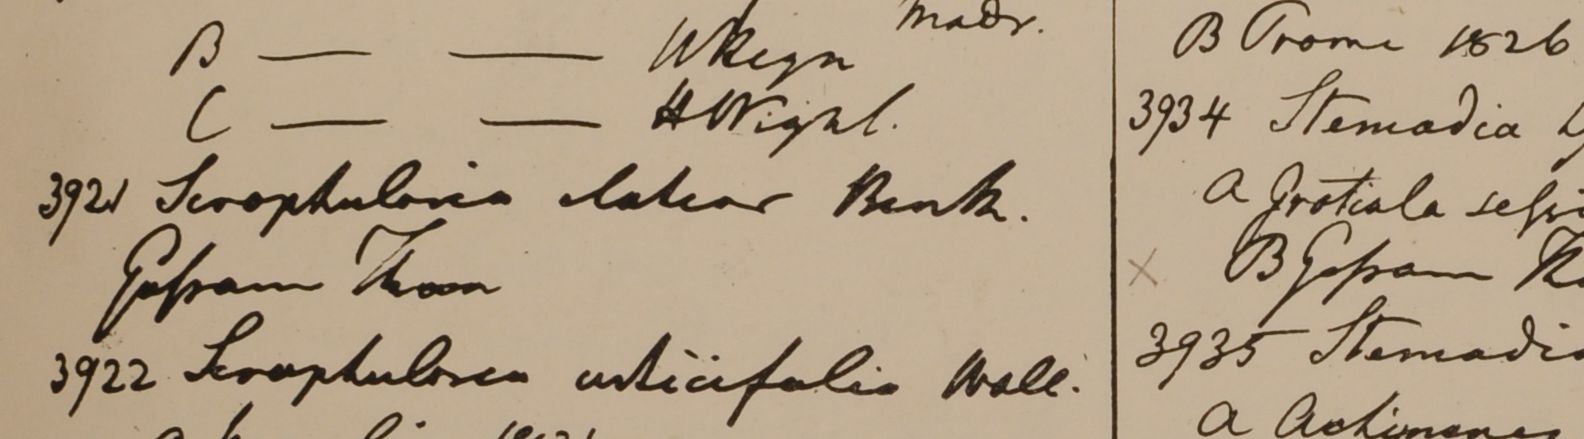 Madr.
B — — Wkeyn
C — — H Wight.
3921 Scrophularia elatior Benth.
Gossam Thaon
3922 Scrophularia urticifolia Wall.
B Prome 1826
3934 Stemodia
a Gratiola
B Gossam
3935 Stemodia
a